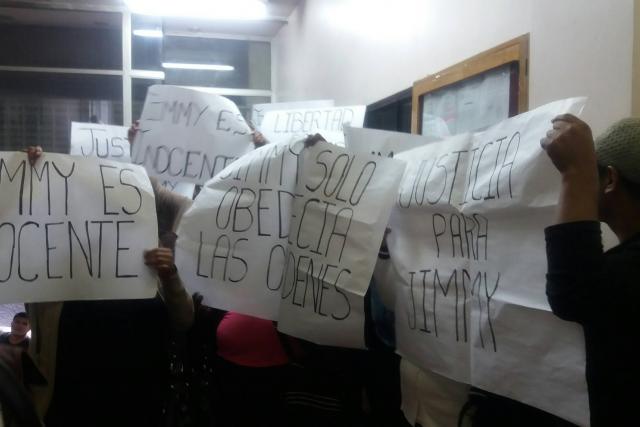 JUS
JIMMY ES
INOCENTE
LIBERTAD
MMY ES
OCENTE
JIMMY SOLO
OBEDECIA
LAS ODENES
JUSTICIA
PARA
JIMMY